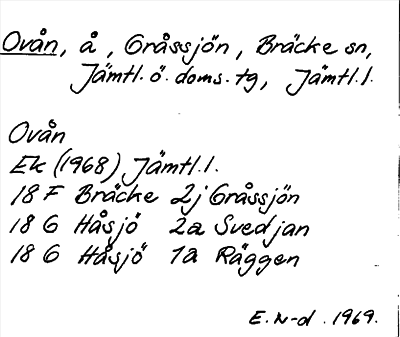 Ovån, å, Gråssjön, Bräcke sn,
Jämtl. ö. doms. tg, Jämtl. l.
Ovån
Ek (1968) Jämtl. l.
18 F Bräcke 2j Gråssjön
18 G Håsjö 2a Svedjan
18 G Håsjö 1a Räggen
E. N-d. 1969.